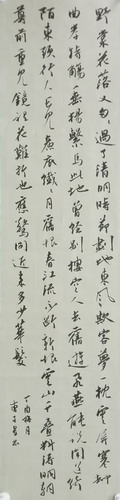 野棠花落又匆匆過了清明時節剗地東風欺客夢一枕雲屏寒怯
曲岸持觴垂楊繫馬此地曾輕別樓空人去舊遊飛燕能說聞道綺
陌東頭行人長見簾底纖纖月舊恨春江流不斷新恨雲山千疊料得明朝
尊前重見鏡裏花難折也應驚問近來多少華髮
丁酉梅月